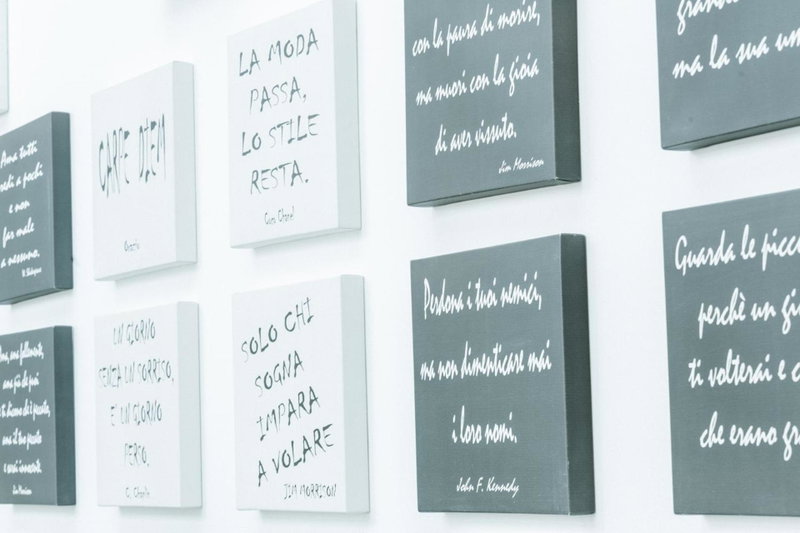 Ama tutti
credi a pochi
e non
far male
a nessuno.
W. Shakespeare
CARPE DIEM
Orazio
LA MODA
PASSA,
LO STILE
RESTA.
Coco Chanel
con la paura di morire,
ma muori con la gioia
di aver vissuto.
Jim Morrison
ma la sua un
Ama, ama follemente,
ama più che puoi
e ti dicono che è peccato,
ama il tuo peccato
e sarai innocente.
Jim Morrison
UN GIORNO
SENZA UN SORRISO,
È UN GIORNO
PERSO.
C. Chaplin
SOLO CHI
SOGNA
IMPARA
A VOLARE
JIM MORRISON
Perdona i tuoi nemici,
ma non dimenticare mai
i loro nomi.
John F. Kennedy
Guarda le picc
perchè un gi
ti volterai e c
che erano gr